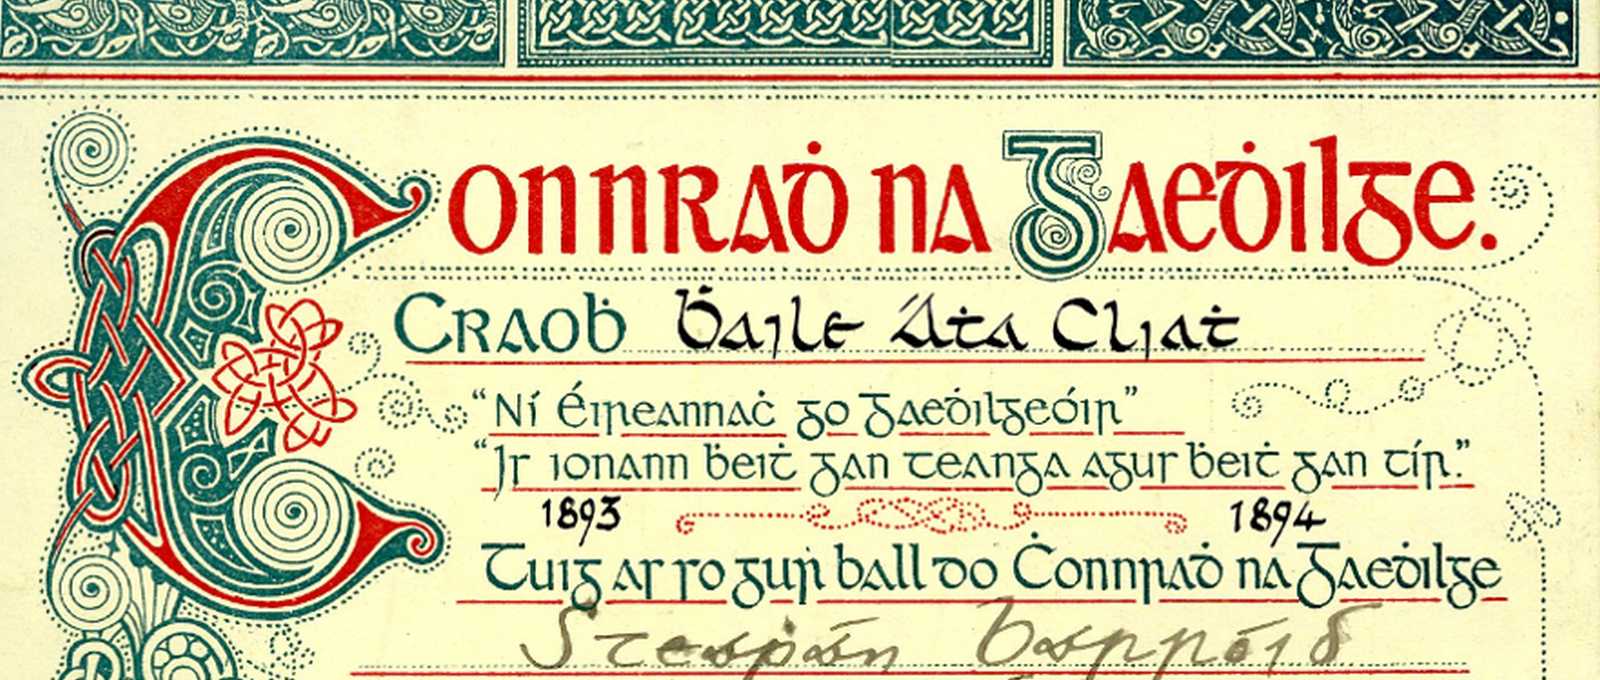 Connraḋ na Gaeḋilge.
Craoḃ Ḃaile Áṫa Cliaṫ
“Ní Éireannaċ go Gaeḋilgeóir”
“Is ionann ḃeiṫ gan teanga agus ḃeiṫ gan tír.”
1893 1894
Tuig as so gur ball do Ċonnraḋ na Gaeḋilge
Steaṗán Barróid